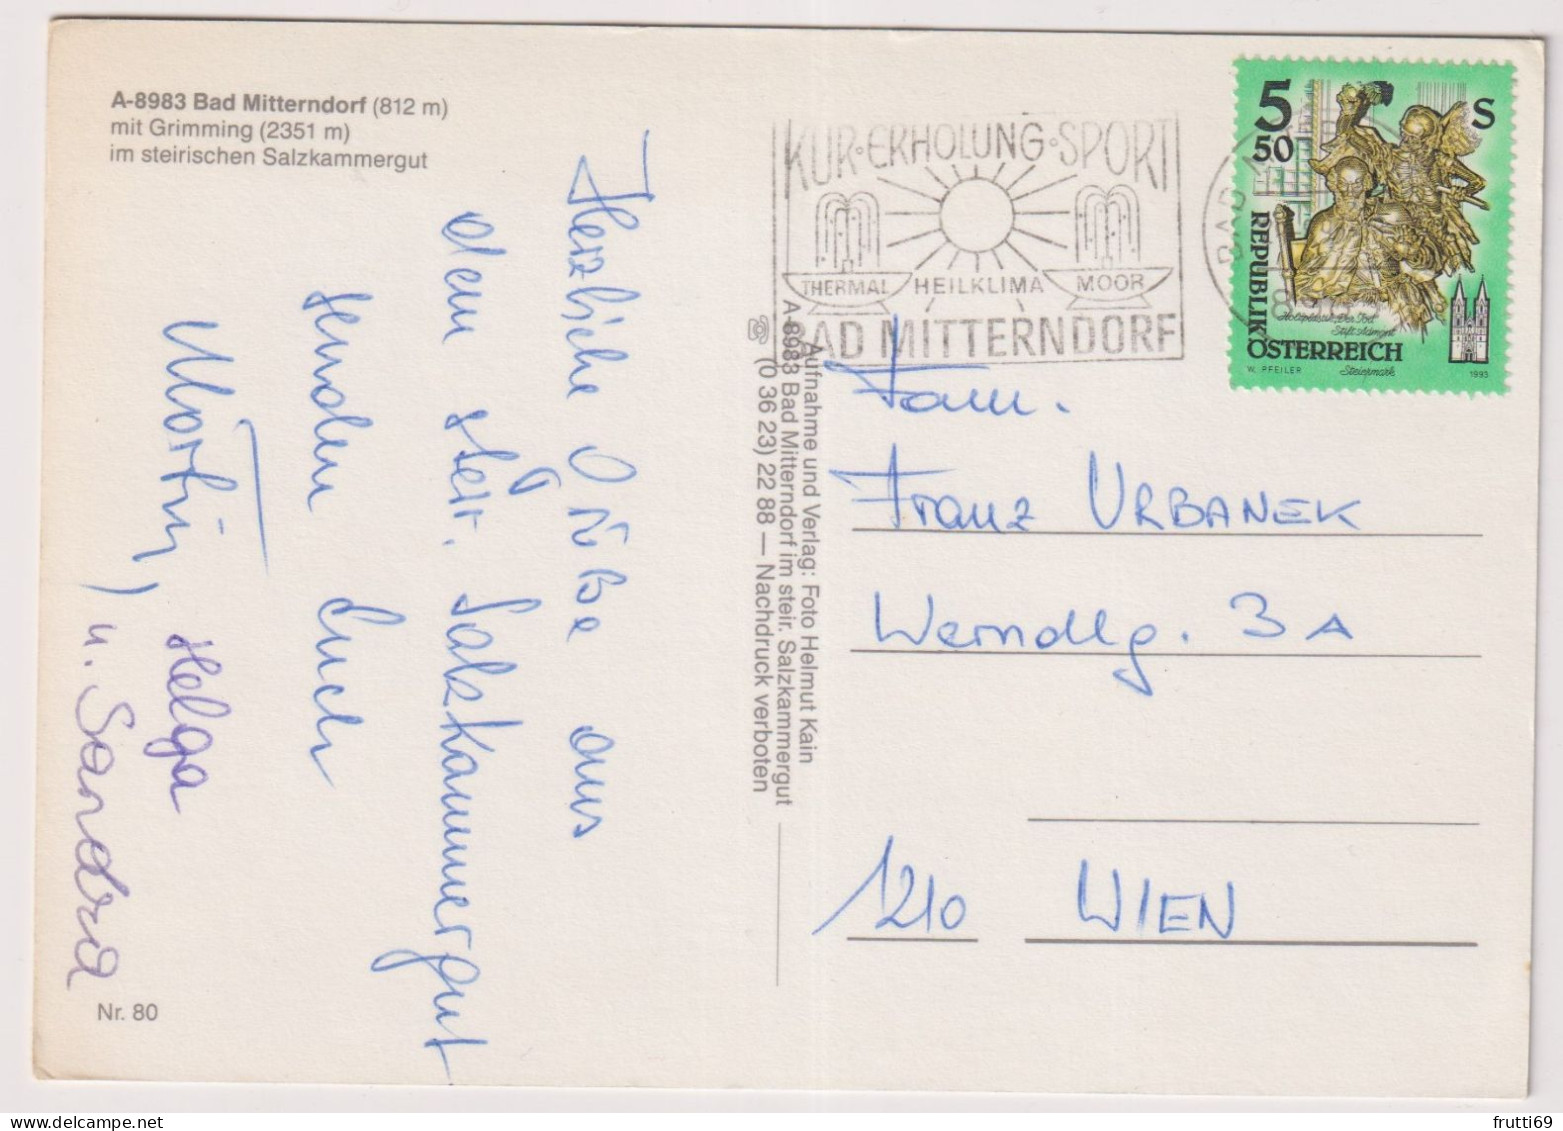 A-8983 Bad Mitterndorf (812 m)
mit Grimming (2351 m)
im steirischen Salzkammergut
Herzliche Grüße aus
dem steir. Salzkammergut
senden Euch
Martin, Helga
u. Sandra
Nr. 80
Aufnahme und Verlag: Foto Helmut Kain
A-8983 Bad Mitterndorf im steir. Salzkammergut
☎ (0 36 23) 22 88 — Nachdruck verboten
KUR·ERHOLUNG·SPORT
THERMAL HEILKLIMA MOOR
BAD MITTERNDORF
BAD
8
5 50 S
REPUBLIK
ÖSTERREICH
Stift Admont
Steiermark
W. PFEILER
1993
Fam.
Franz URBANEK
Werndlg. 3A
1210 WIEN
frutti69